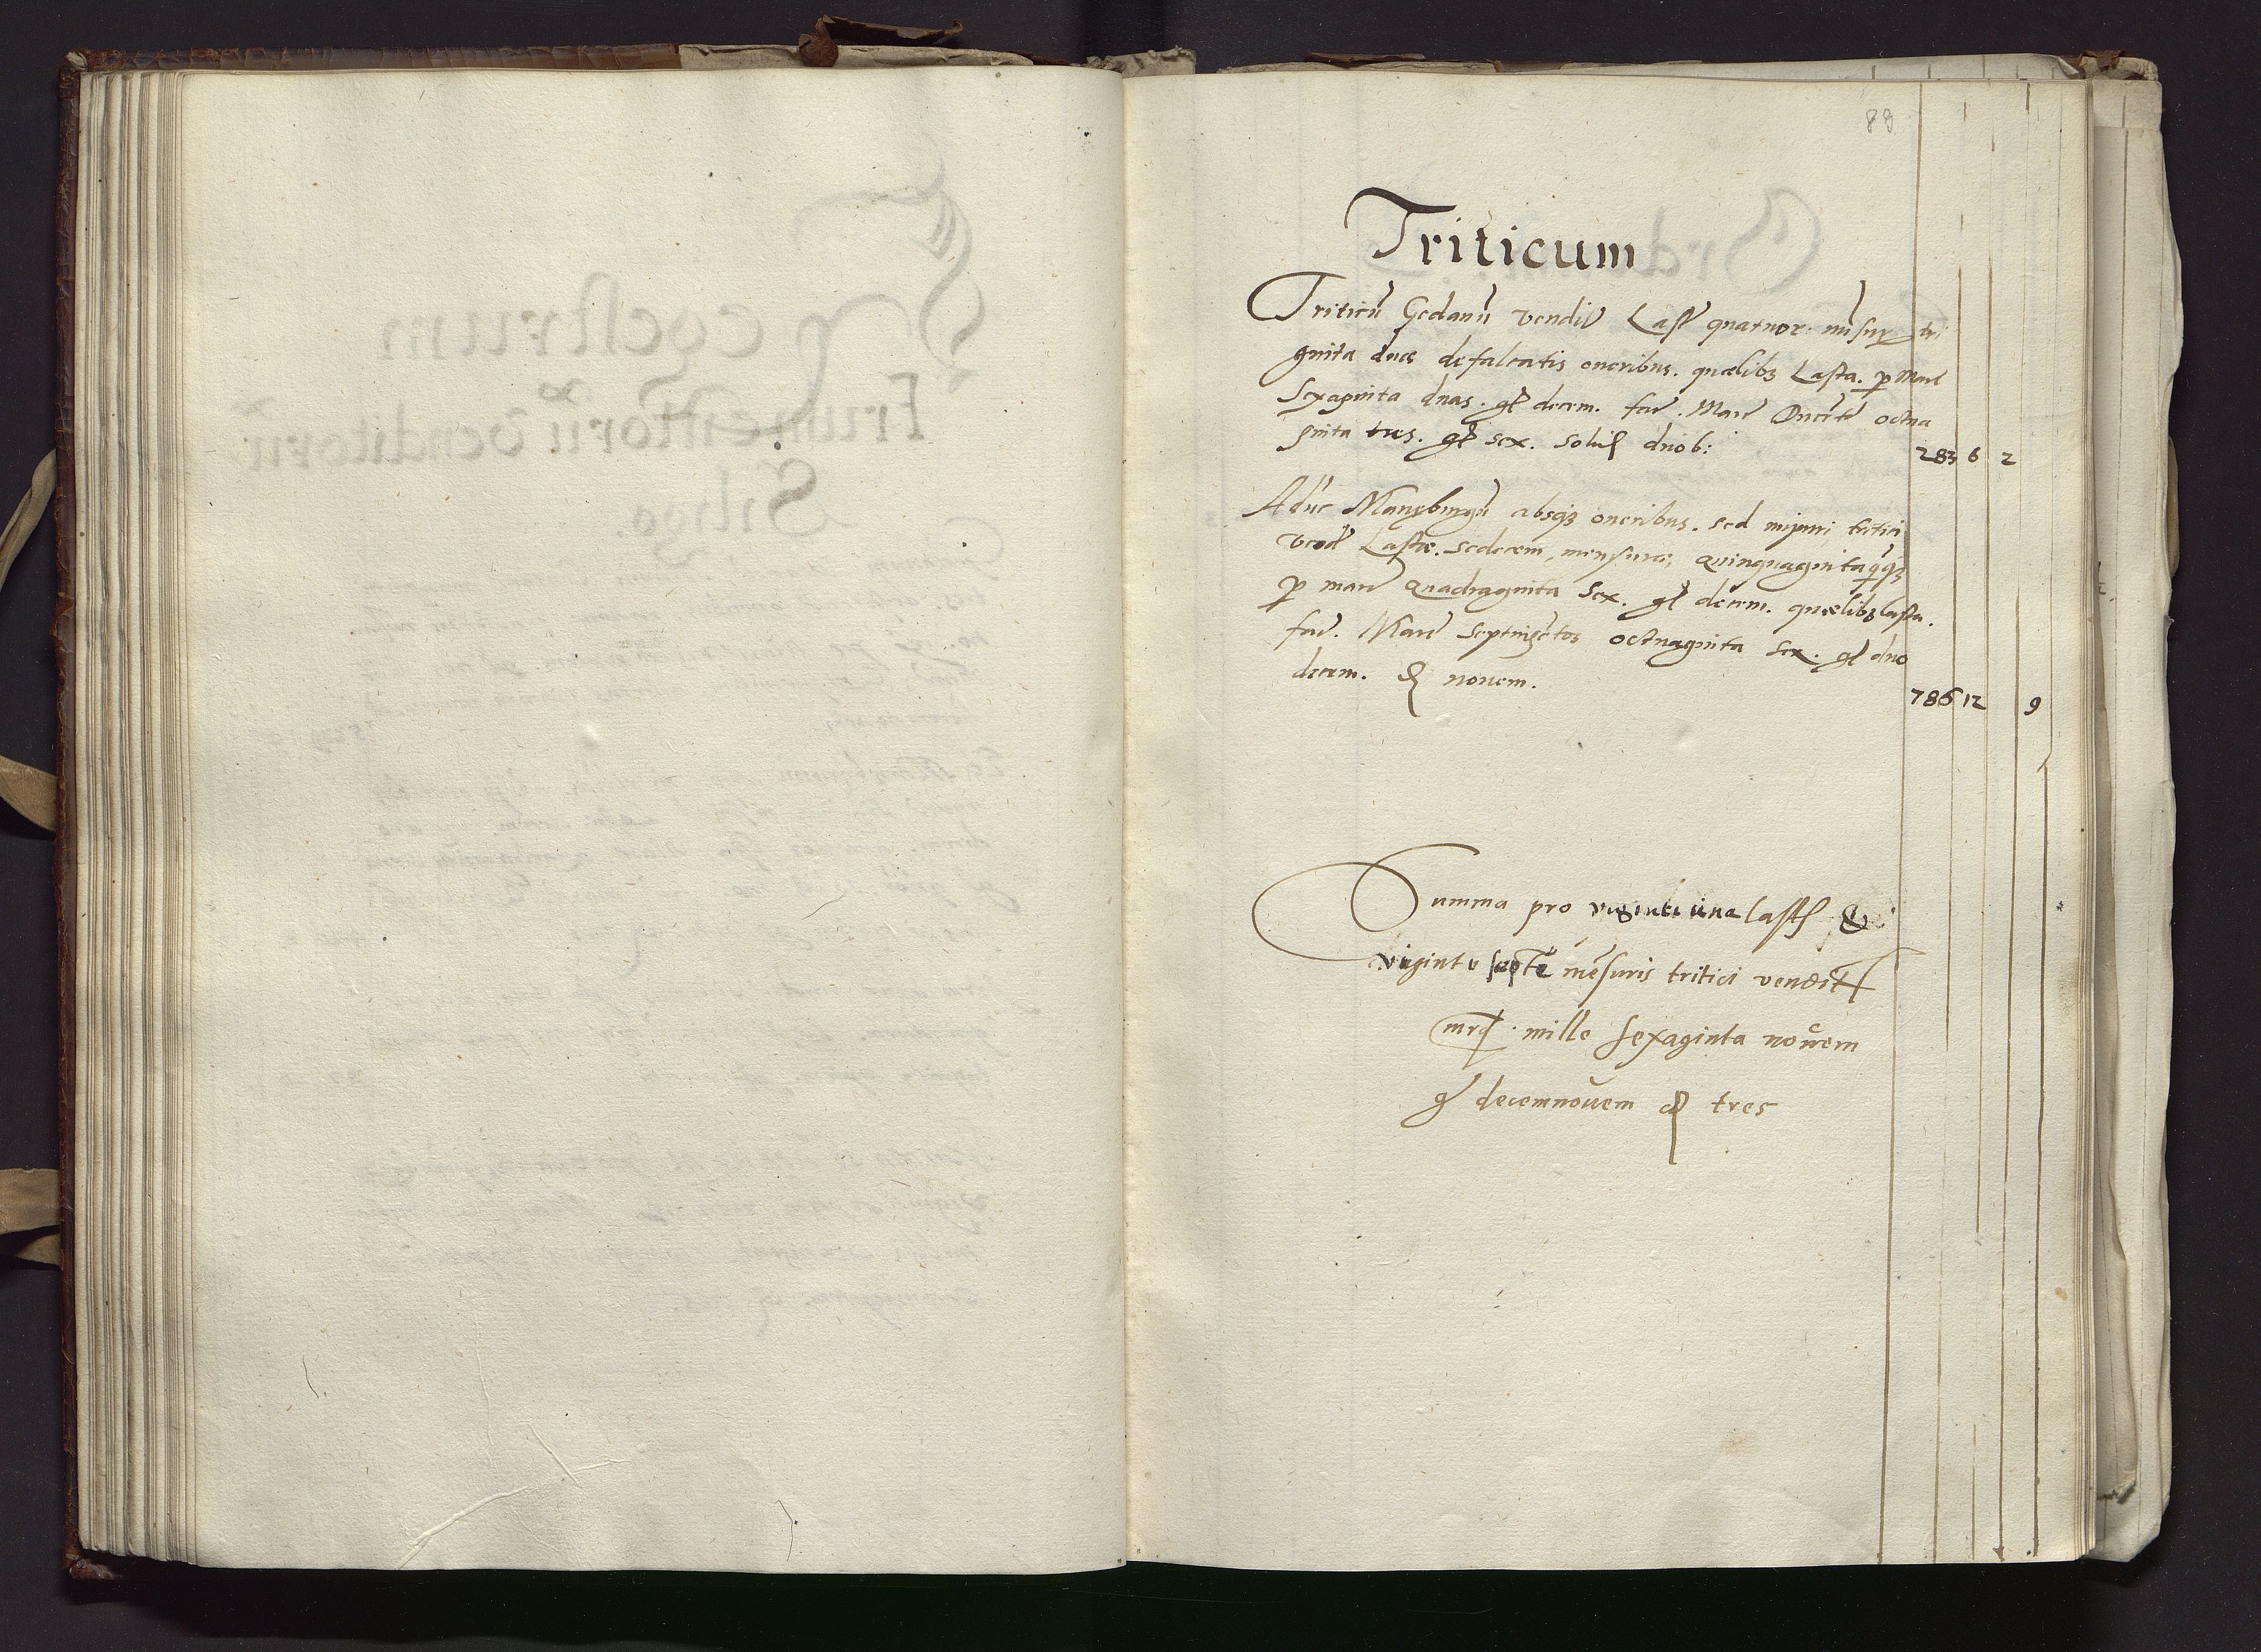 89
Triticum
Triticū Gedanū vendit Last quatuor. mēsur tri
ginta duas defalcatis oneribus. quælibꝫ Lasta. p Marc
Sexaginta duas. gr decem. fac. Marc Ducēte octua
ginta tres. gr sex. solid duob: 283 6 2
Aduc absqꝫ oneribus. sed tritici
vend Lastæ. sedecem, mensuræ, quinquaginta
p marc Quadraginta Sex. gr decem. quælibꝫ lasta.
fac. Marc Septingētos octuaginta sex. gr duo
decem. ₰ nouem. 786 12 9
Summa pro viginti una last &
viginti septē mēsuris tritici vendit
mrc. mille sexaginta novem
gr decemnouem ₰ tres